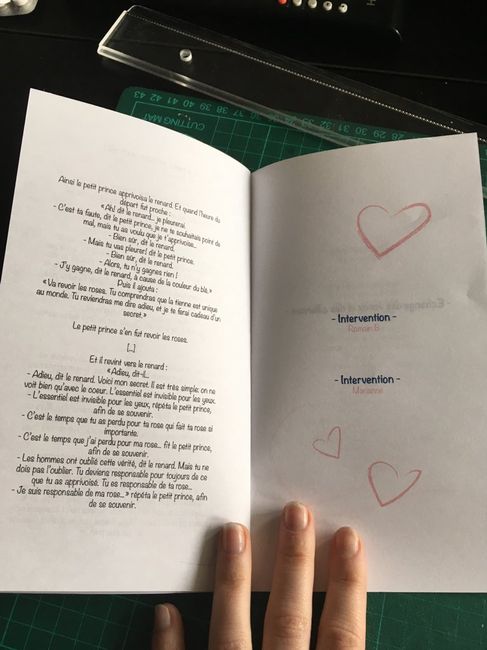 CUTTING MAT
Ainsi le petit prince apprivoisa le renard. Et quand l'heure du
départ fut proche :
«Ah! dit le renard... je pleurerai.
- C'est ta faute, dit le petit prince, je ne te souhaitais point de
mal, mais tu as voulu que je t'apprivoise...
- Bien sûr, dit le renard.
- Mais tu vas pleurer! dit le petit prince.
- Bien sûr, dit le renard.
- Alors, tu n'y gagnes rien !
- J'y gagne, dit le renard, à cause de la couleur du blé.»
Puis il ajouta :
«Va revoir les roses. Tu comprendras que la tienne est unique
au monde. Tu reviendras me dire adieu, et je te ferai cadeau d'un
secret.»
Le petit prince s'en fut revoir les roses.
[...]
Et il revint vers le renard :
«Adieu, dit-il...
- Adieu, dit le renard. Voici mon secret. Il est très simple: on ne
voit bien qu'avec le coeur. L'essentiel est invisible pour les yeux.
- L'essentiel est invisible pour les yeux, répéta le petit prince,
afin de se souvenir.
- C'est le temps que tu as perdu pour ta rose qui fait ta rose si
importante.
- C'est le temps que j'ai perdu pour ma rose... fit le petit prince,
afin de se souvenir.
- Les hommes ont oublié cette vérité, dit le renard. Mais tu ne
dois pas l'oublier. Tu deviens responsable pour toujours de ce
que tu as apprivoisé. Tu es responsable de ta rose...
- Je suis responsable de ma rose...» répéta le petit prince, afin
de se souvenir.
- Intervention -
Romain B
- Intervention -
Marianne